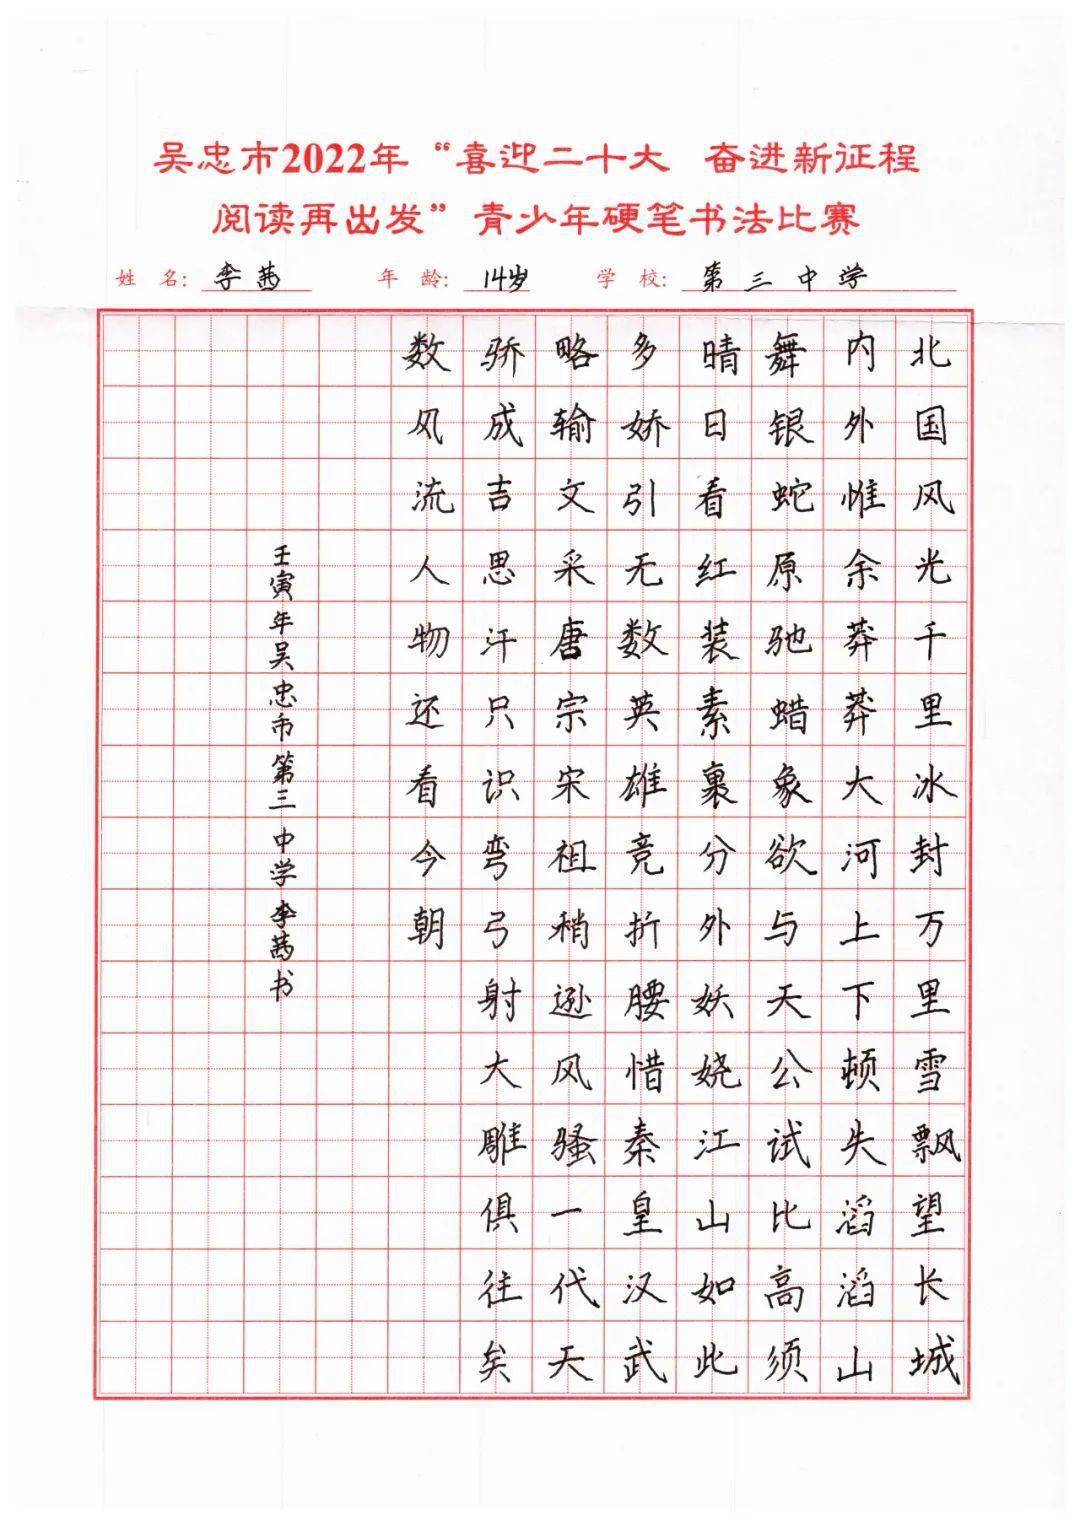 吴忠市2022年“喜迎二十大 奋进新征程
阅读再出发”青少年硬笔书法比赛
姓 名: 李茜 年 龄: 14岁 学 校: 第三中学
北国风光千里冰封万里雪飘望长城
内外惟余莽莽大河上下顿失滔滔山
舞银蛇原驰蜡象欲与天公试比高须
晴日看红装素裹分外妖娆江山如此
多娇引无数英雄竞折腰惜秦皇汉武
略输文采唐宗宋祖稍逊风骚一代天
骄成吉思汗只识弯弓射大雕俱往矣
数风流人物还看今朝
壬寅年吴忠市第三中学李茜书